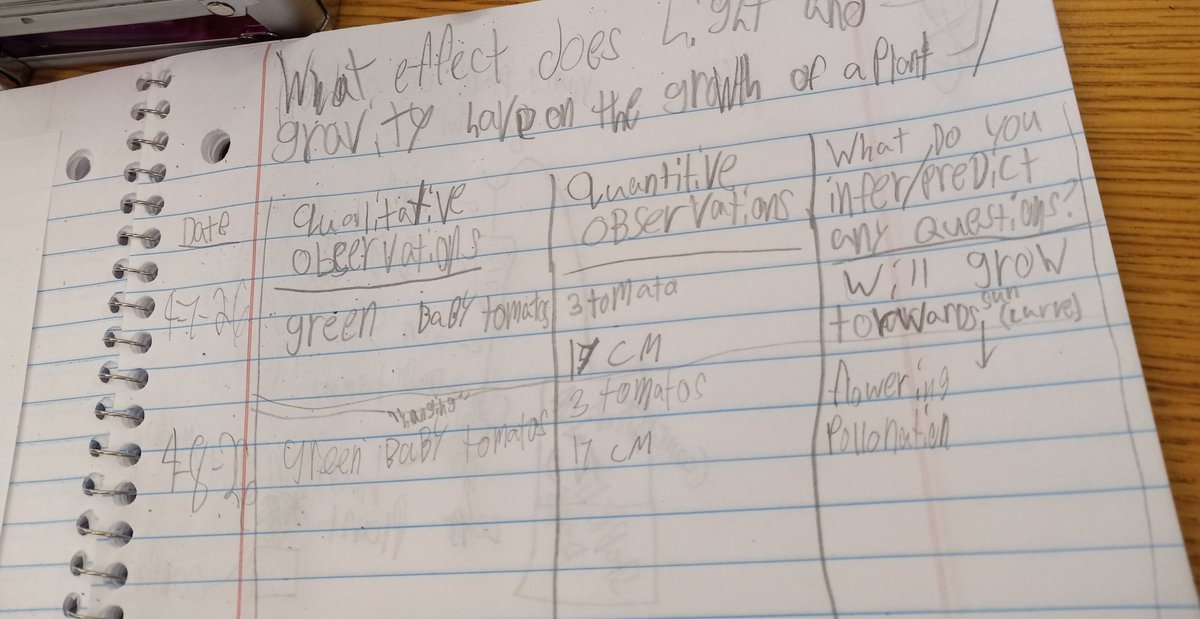 What effect does Light and
gravity have on the growth of a Plant
Date
Qualitative
observations
Quantitive
OBSERVATIONS
What Do You
infer/preDict
any Questions?
4-7-26
green BaBY tomatos
3 tomata
17 CM
will grow
torwards sun (curve)
4-8-26
green BaBY "hanging" tomatos
3 tomatos
17 CM
flowering
Pollonation